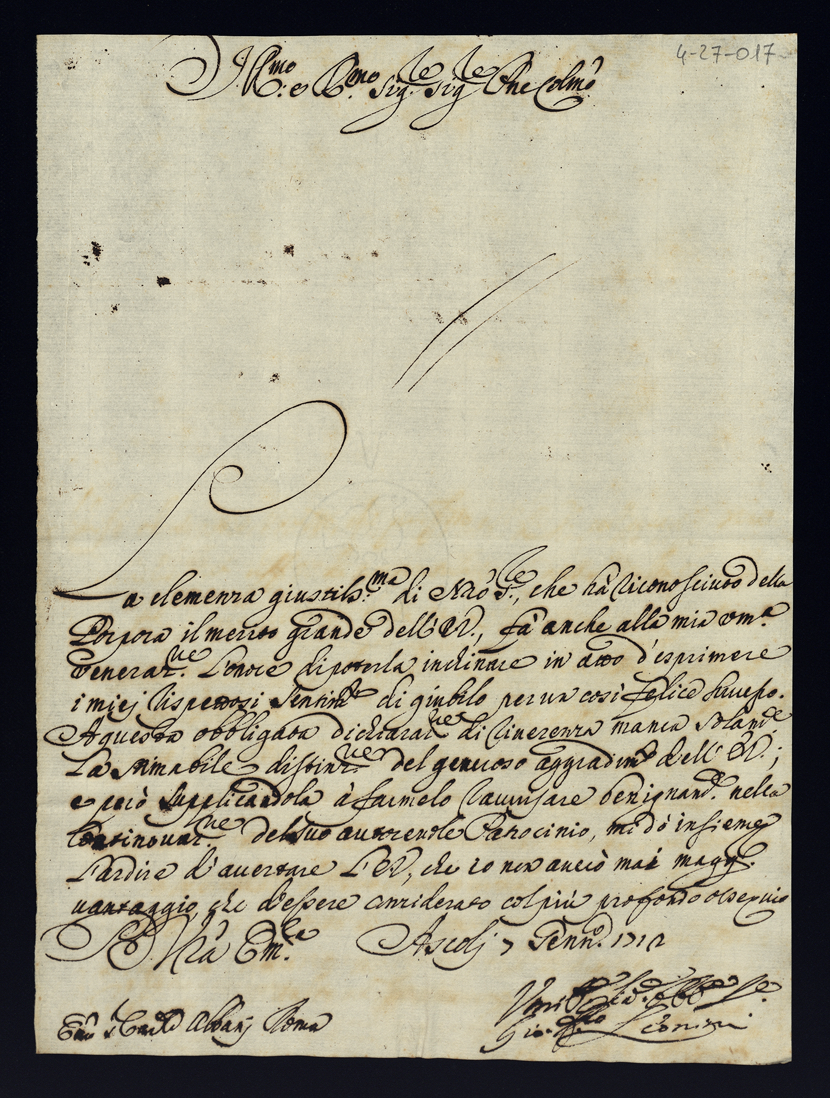 4-27-017
Ill.mo e R.mo Sig.re Sig.re P.ne Colmo
La clemenza giustiss.ma di Nro S.re, che hà riconosciuto della
Porpora il merito grande dell'E.V., fà anche alla mia um.a
veneraz.ne l'onore di poterla inchinare in atto d'esprimere
i miej rispettosi sentim.ti di giubilo per un così felice successo.
A questa obbligata dichiaraz.ne di riverenza manca solam.te
la stimabile distinz.ne del generoso aggradim.to dell'E.V.;
e però supplicandola à farmelo ravvisare benignam.te nella
continouaz.ne del suo autorevole Patrocinio, mi dò insieme
l'ardire d'accertare l'E.V., che io non averò mai magg.r
vantaggio, che d'essere considerato col più profondo ossequio
D. V.ra Em.za Ascoli 7 Genn.o 1712
Em.o S. Card. Albanj Roma
Gio.